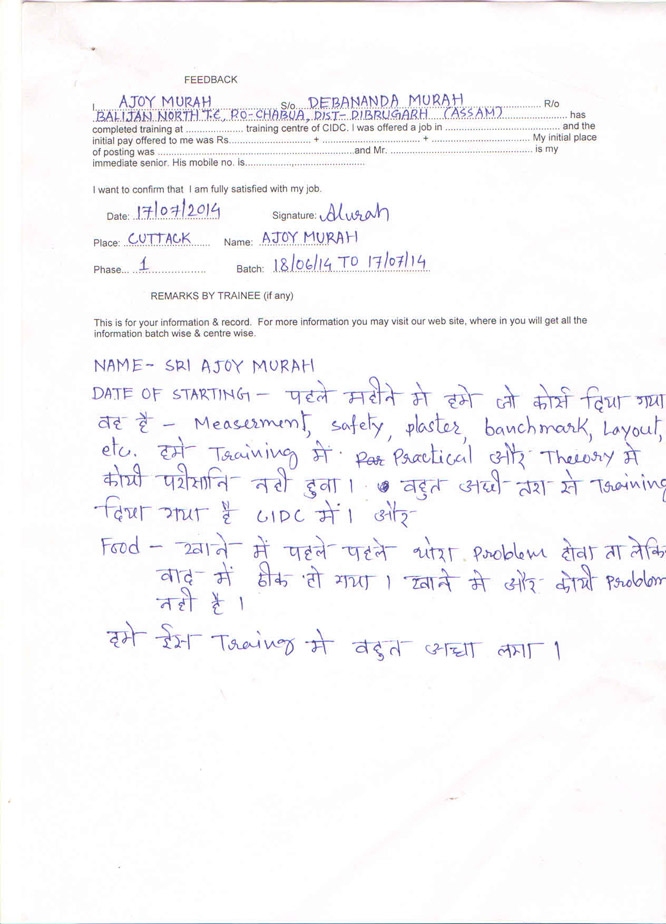 FEEDBACK
I, AJOY MURAH S/o DEBANANDA MURAH R/o
BALIJAN NORTH T.E, P.O-CHABUA, DIST- DIBRUGARH (ASSAM) has
completed training at ..................... training centre of CIDC. I was offered a job in .......................................... and the
initial pay offered to me was Rs.............................. + .................................... + .................................... My initial place
of posting was .......................................................................and Mr. .................................................... is my
immediate senior. His mobile no. is...........................................
I want to confirm that I am fully satisfied with my job.
Date: 17/07/2014 Signature: Murah
Place: CUTTACK Name: AJOY MURAH
Phase... 1 Batch: 18/06/14 TO 17/07/14
REMARKS BY TRAINEE (if any)
This is for your information & record. For more information you may visit our web site, where in you will get all the
information batch wise & centre wise.
NAME- SRI AJOY MURAH
DATE OF STARTING - पहले महीने मे हमे जो कोर्स दिया गया
वह है - Measerment, safety, plaster, banchmark, Layout,
etc. हमे Training में Practical और Theory मे
कोयी परीसानि नही हुवा। वहुत अछी तरा से Training
दिया गया है CIDC में। और
Food - खाने में पहले पहले थोरा Problem होवा ता लेकि
वाद में ठीक हो गया। खाने मे और कोयी Problem
नही है।
हमे ईस Traing मे वहुत अच्छा लगा।